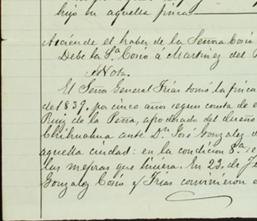 hijo en aquella finca
Asciende el haber de la Señora Cosio
Debe la Sª Cosio á Martinez del
Nota.
El Señor General Frias tomó la finca
del 1839. por cinco años segun consta de
Ruiz de la Peña, apoderado del dueño
Chihuahua ante Dn José Gonzalez
aquella ciudad: en la condicion 8ª
las mejoras que hiciera. En 23. de
Gonzalez Cosio y Frias convinieron